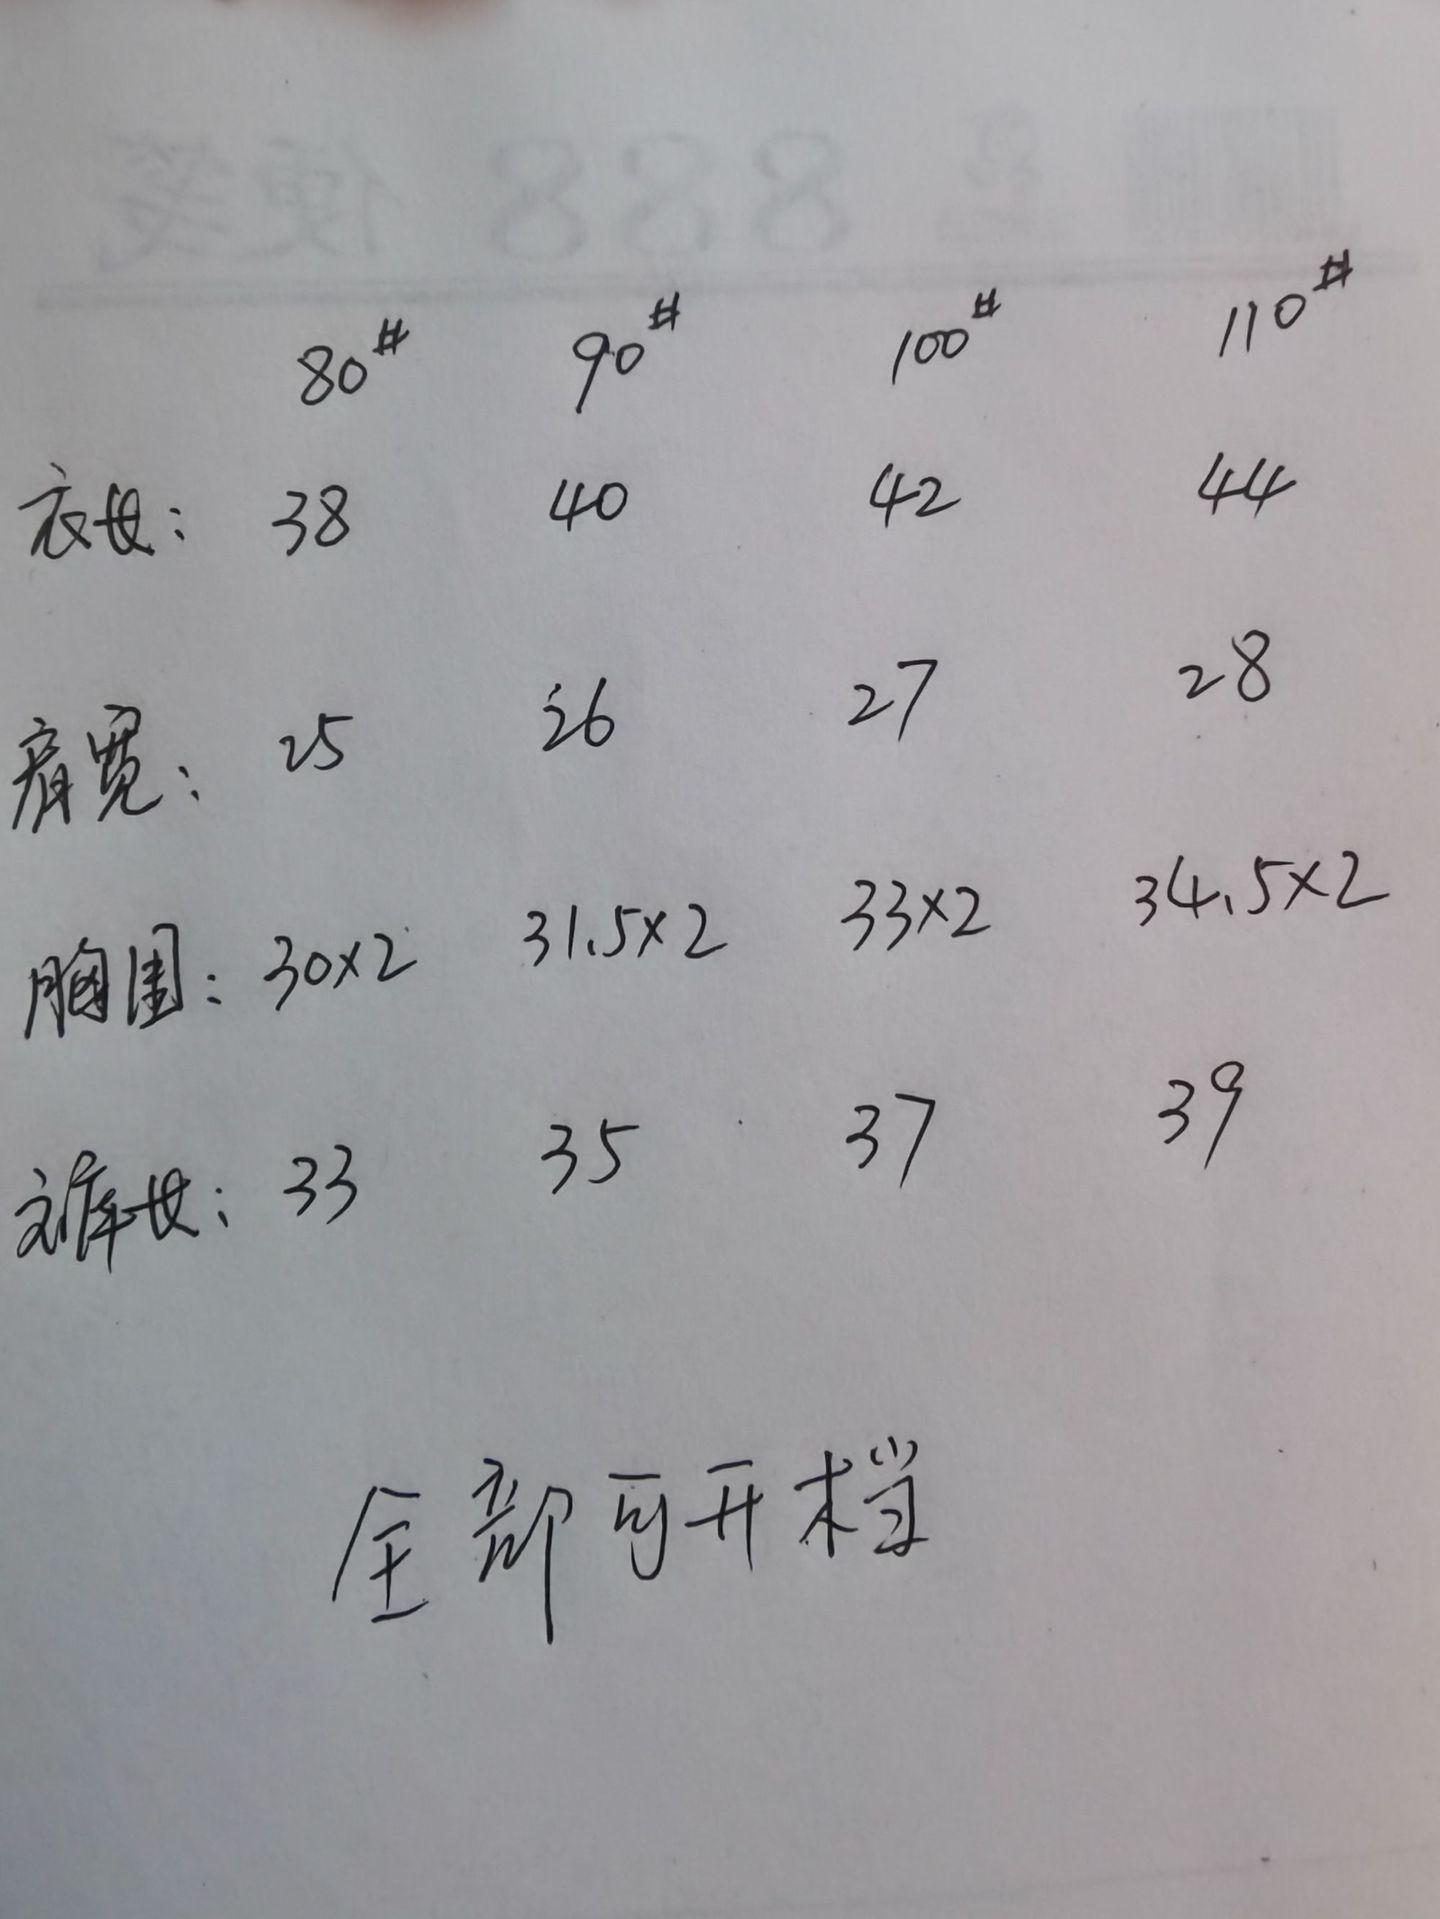 便笺 888
80# 90# 100# 110#
衣长: 38 40 42 44
肩宽: 25 26 27 28
胸围: 30×2 31.5×2 33×2 34.5×2
裤长: 33 35 37 39
全部可开档